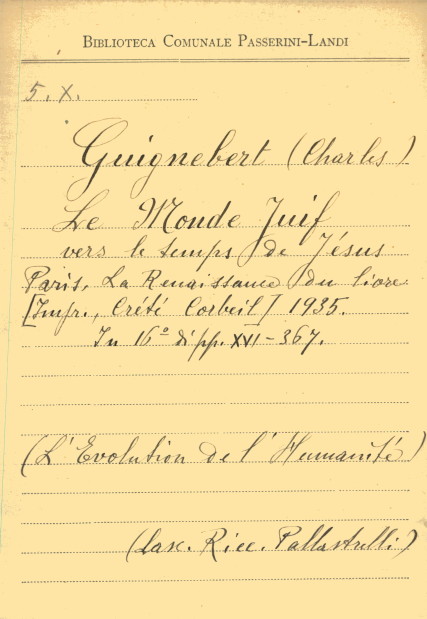 BIBLIOTECA COMUNALE PASSERINI-LANDI
5. X.
Guignebert (Charles)
Le Monde Juif
vers le temps de Jésus
Paris, La Renaissance du livre
[Impr., Crété Corbeil] 1935.
In 16º di pp. XVI-367.
(L'Evolution de l'Humanité)
(Lasc. Ricc. Pallastrelli)